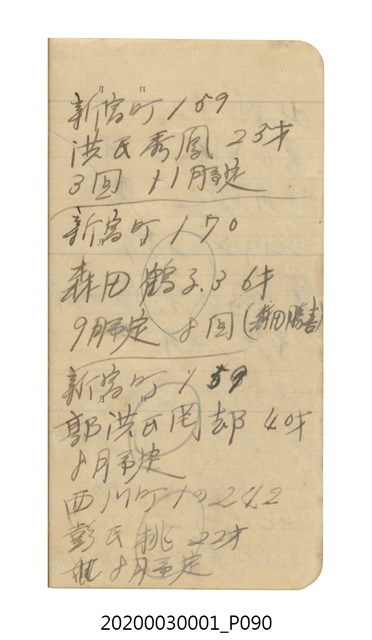 新富町159
洪氏秀鳳 23才
3回 11月予定
新富町170
森田鶴子.36才
9月予定 8回(森田勝喜)
新富町159
郭洪氏罔却 40才
8月予定
西川町102ノ2
彭氏桃 22才
8月予定
20200030001_P090